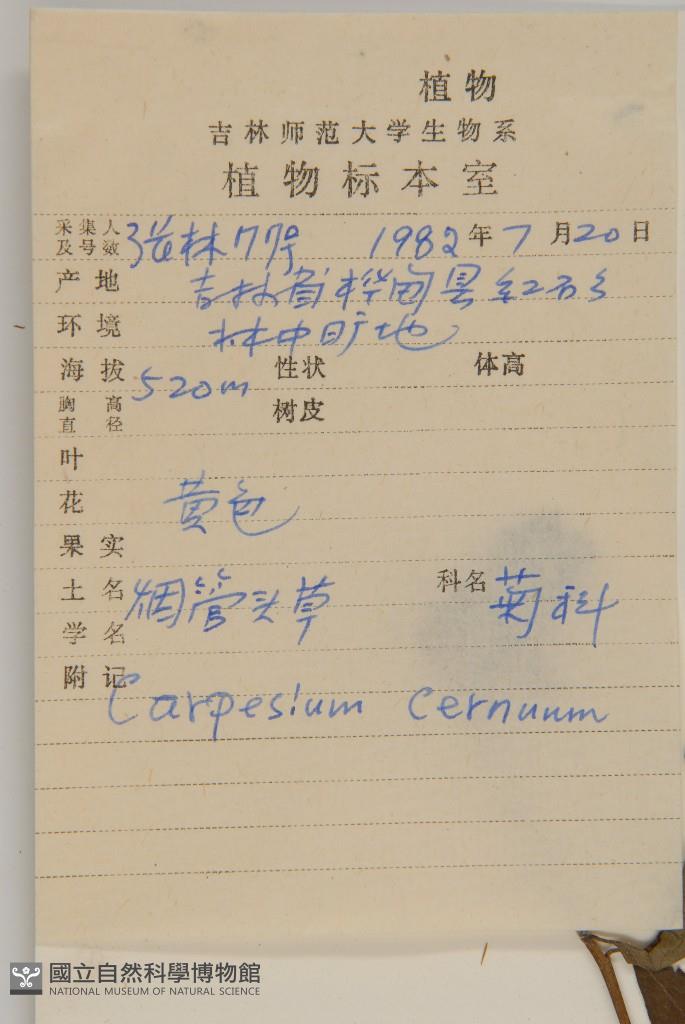 植物
吉林师范大学生物系
植物标本室
采集人及号数 张林77号 1982年7月20日
产地 吉林省桦甸县红石乡
环境 林中旷地
海拔 520m 性状 体高
胸高直径 树皮
叶
花 黄色
果实
土名 烟管头草 科名 菊科
学名
附记 Carpesium cernuum
國立自然科學博物館
NATIONAL MUSEUM OF NATURAL SCIENCE